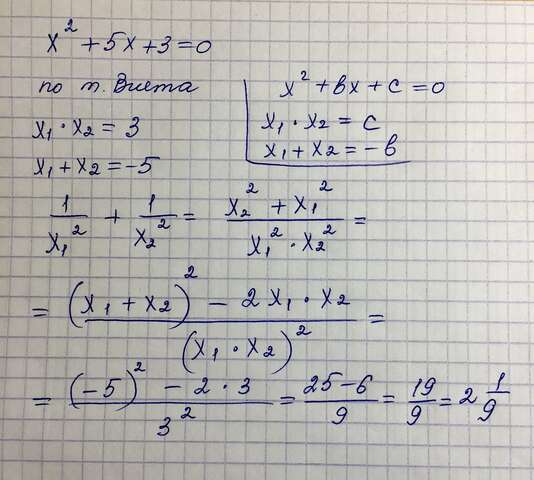 x² + 5x + 3 = 0
по т. Виета
x₁ · x₂ = 3
x₁ + x₂ = -5
x² + bx + c = 0
x₁ · x₂ = c
x₁ + x₂ = -b
1/x₁² + 1/x₂² = (x₂² + x₁²)/(x₁² · x₂²) =
= ((x₁ + x₂)² - 2x₁ · x₂)/(x₁ · x₂)² =
= ((-5)² - 2 · 3)/3² = (25-6)/9 = 19/9 = 2 1/9